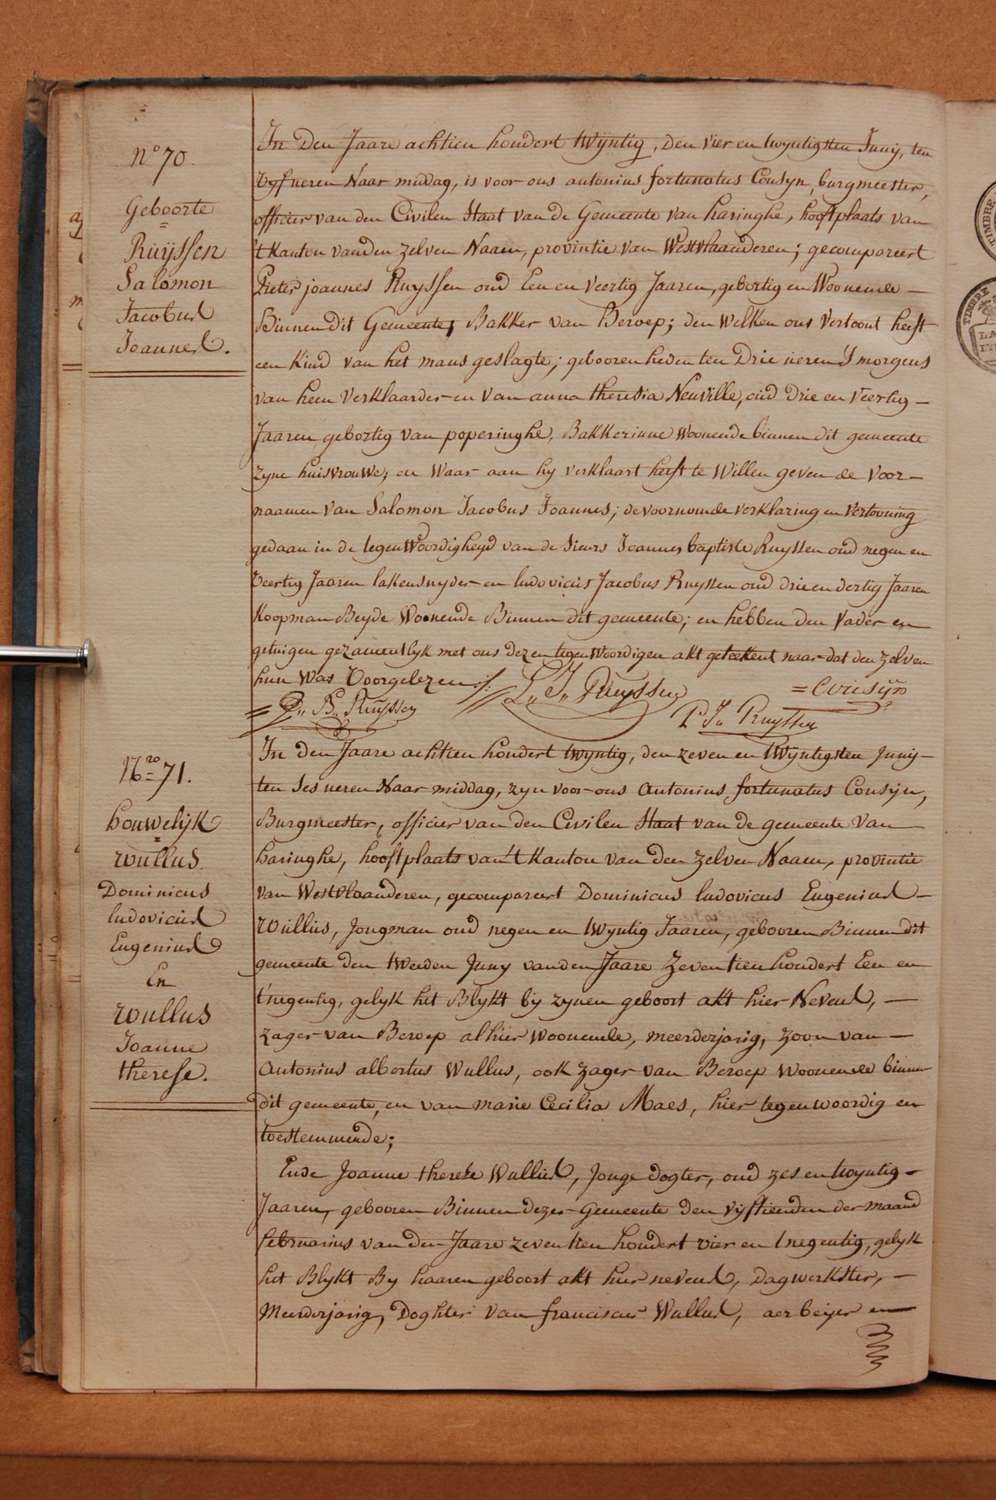 N° 70.
Geboorte
=
Ruÿssen
Salomon
Jacobus
Joannes.
In Den Jaare achtien hondert twÿntig, Den vier en twyntigsten Junÿ, ten
vyf ueren Naar middag, is voor ons antonius fortunatus Cousyn, burgmeester,
officier van den Civilen Staat van de Gemeente van haringhe, hooftplaats van
't Kanton vanden zelven Naam, provintie van Westvlaanderen; gecompareert
Pieter joannes Ruyssen oud Een en veertig Jaaren, gebortig en Woonende –
Binnen Dit Gemeente, Bakker van Beroep; den Welken ons vertoont heeft
een Kind van het mans geslagte; gebooren heden ten Drie ueren 's morgens
van hem verklaarder en van anna theresia Neuville, oud drie en veertig –
Jaaren gebortig van poperinghe, Bakkerinne Woonende binnen dit gemeente
zyne huisvrouwe, en Waar aan hy verklaart heeft te Willen geven de voor–
naamen van Salomon Jacobus Joannes; de voornoemde verklaring en vertooning
gedaan in de tegenWoordigheyd van de Sieurs Joannes baptiste Ruyssen oud negen en
veertig Jaaren lakensnyder en ludovicus Jacobus Ruyssen oud drie en dertig Jaaren
Koopman Beyde Woonende Binnen dit gemeente; en hebben den Vader en
getuigen gezamentlyk met ons dezen tegenWoordigen akt geteekent naar dat den zelven
hun Was Voorgelezen ./.
L,, J,, Ruyssen
= Cousÿn
= J,, B,, Ruÿssen
P,, J,, Ruyssen
N.ro 71.
=
houwelijk
=
Wullus.
Dominicus
ludovicus
Eugenius
En
Wullus
Joanne
therese.
In den Jaare achtien hondert twyntig, den zeven en twÿntigsten Juny–
ten Ses ueren Naar middag, zyn voor ons Antonius fortunatus Cousyn,
Burgmeester, officier van den Civilen Staat van de gemeente van
haringhe, hooftplaats van 't Kanton van den zelven Naam, provintie
van Westvlaanderen, gecompareert Dominicus ludovicus Eugenius –
Wullus, Jongman oud negen en twyntig Jaaren, gebooren Binnen Dit
gemeente den tweeden Juny van den Jaare Zeventien hondert Een en
t'negentig, gelyk het Blykt bij zynen geboort akt hier Nevens, –
zager van Beroep alhier Woonende, meerderjarig, zoon van –
Antonius albertus Wullus, ook zager van Beroep Woonende binnen
dit gemeente, en van marie Cecilia Maes, hier tegenwoordig en
toestemmende;
Ende Joanne therese Wullus, Jonge dogter, oud zes en twyntig –
Jaaren, gebooren Binnen dezer Gemeente den vyftienden der maand
februarius van den Jaare zeventien hondert vier en t negentig, gelyk
het Blykt By haaren geboort akt hier nevens, Dagwerkster, –
Meerderjarig, Doghter van franciscus Wullus, aerbeijer en